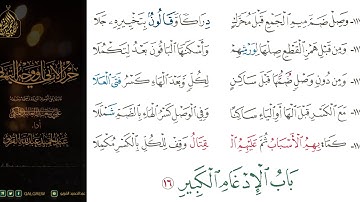 وَصِلْ ضَمَّ مِيمِ الْجَمْعِ قَبْلَ مُحَرَّكٍ دِرَاكًا وَقَالُونٌ بِتَخْيِيرِهِ جَلَا
وَمِن قَبْلِ هَمْزِ الْقَطْعِ صِلْهَا لِوَرْشِهِمْ وَأَسْكَنَهَا الْبَاقُونَ بَعْدُ لِتَكْمُلَا
وَمِن دُونِ وَصْلٍ ضُمَّهَا قَبْلَ سَاكِنٍ لِكُلٍّ وَبَعْدَ الْهَاءِ كَسْرُ فَتَى الْعَلَا
مَعَ الْكَسْرِ قَبْلَ الْهَا أَوِ الْيَاءِ سَاكِنًا وَفِي الْوَصْلِ كَسْرُ الْهَاءِ بِالضَّمِّ شَمْلَلَا
كَمَا بِهِمُ الْأَسْبَابُ ثُمَّ عَلَيْهِمُ الْ قِتَالُ وَقِفْ لِلْكُلِّ بِالْكَسْرِ مُكْمِلَا
بَابُ الْإِدْغَامِ الْكَبِيرِ
١٦
QALGREW